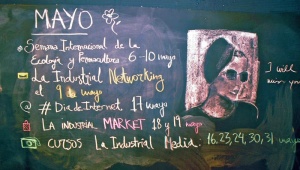 MAYO
Semana Internacional de la
Ecología y Permacultura 6-10 mayo
La Industrial Networking
el 9 mayo
@ #Dia de Internet, 17 mayo
LA INDUSTRIAL MARKET 18 y 19 mayo
CURSOS La Industrial Media: 16, 23, 24, 30, 31 mayo
I will
you